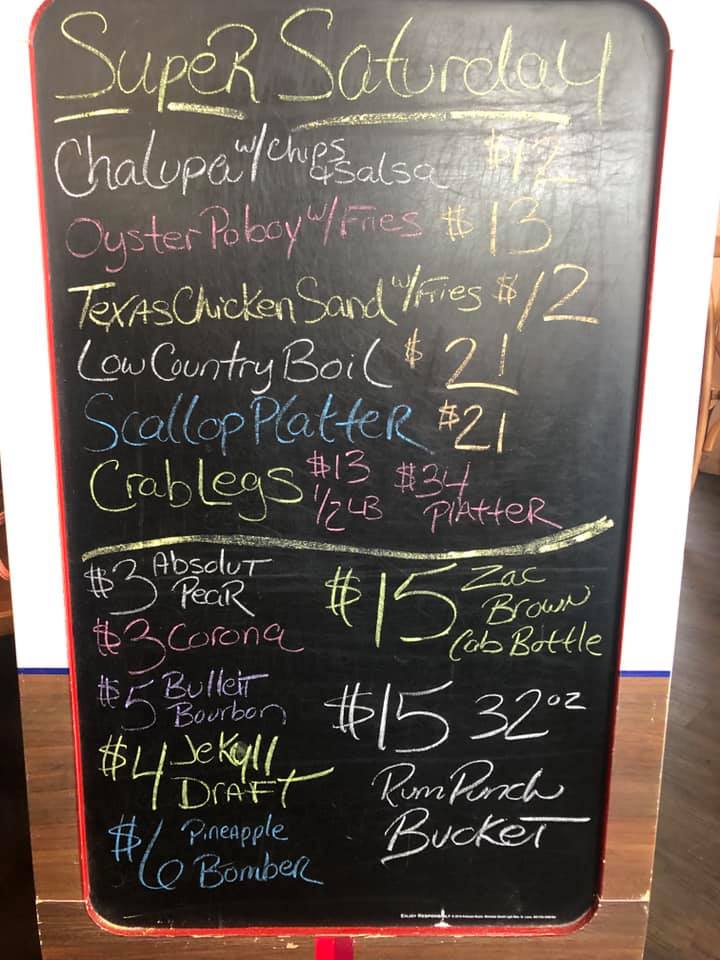 Super Saturday
Chalupa w/ chips & Salsa $12
Oyster Poboy w/ Fries $13
Texas Chicken Sand w/ Fries $12
Low Country Boil $21
Scallop Platter $21
Crab Legs $13 1/2 LB $34 Platter
$3 Absolut Pear
$3 Corona
$5 Bulleit Bourbon
$4 Jekyll Draft
$6 Pineapple Bomber
$15 Zac Brown Cab Bottle
$15 32 oz
Rum Punch
Bucket
Enjoy Responsibly